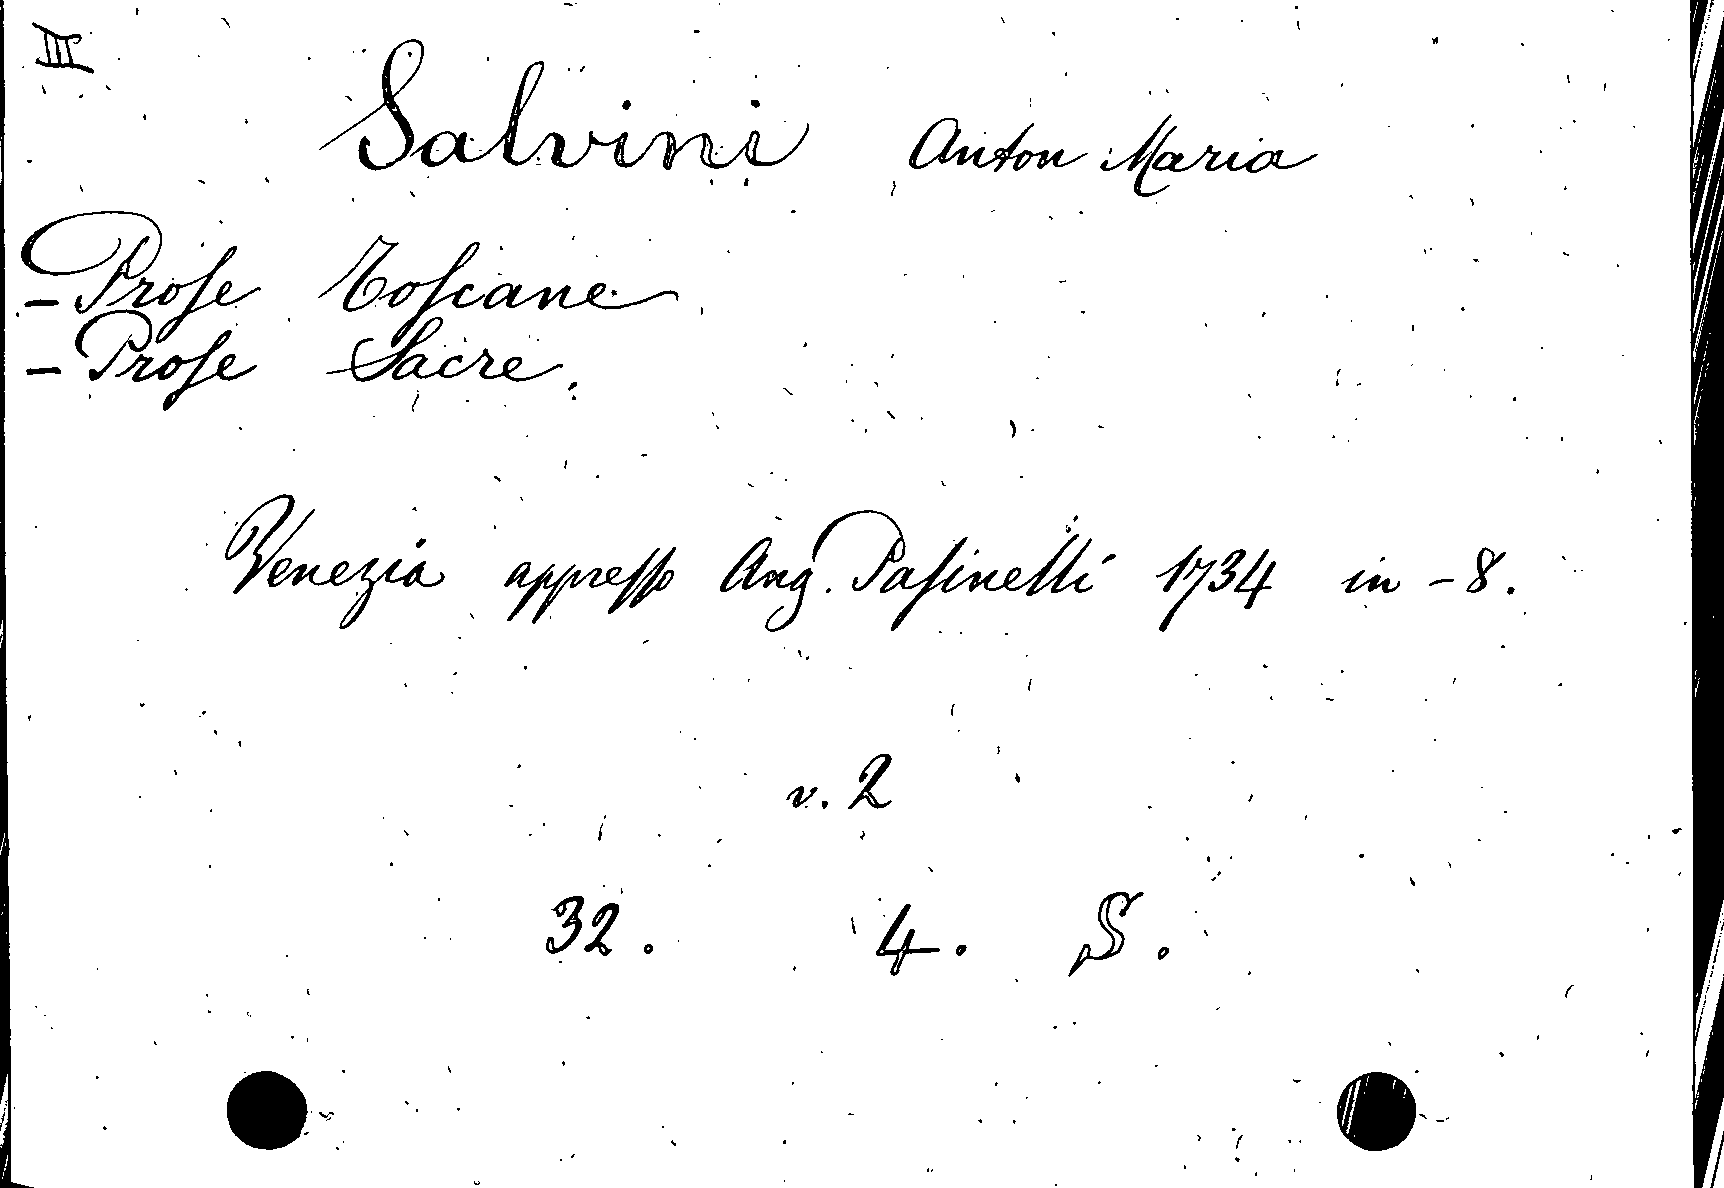 III
Salvini Anton Maria
- Prose Toscane
- Prose Sacre.
Venezia appresso Ang. Pasinelli 1734 in - 8.
v. 2
32. 4. S.